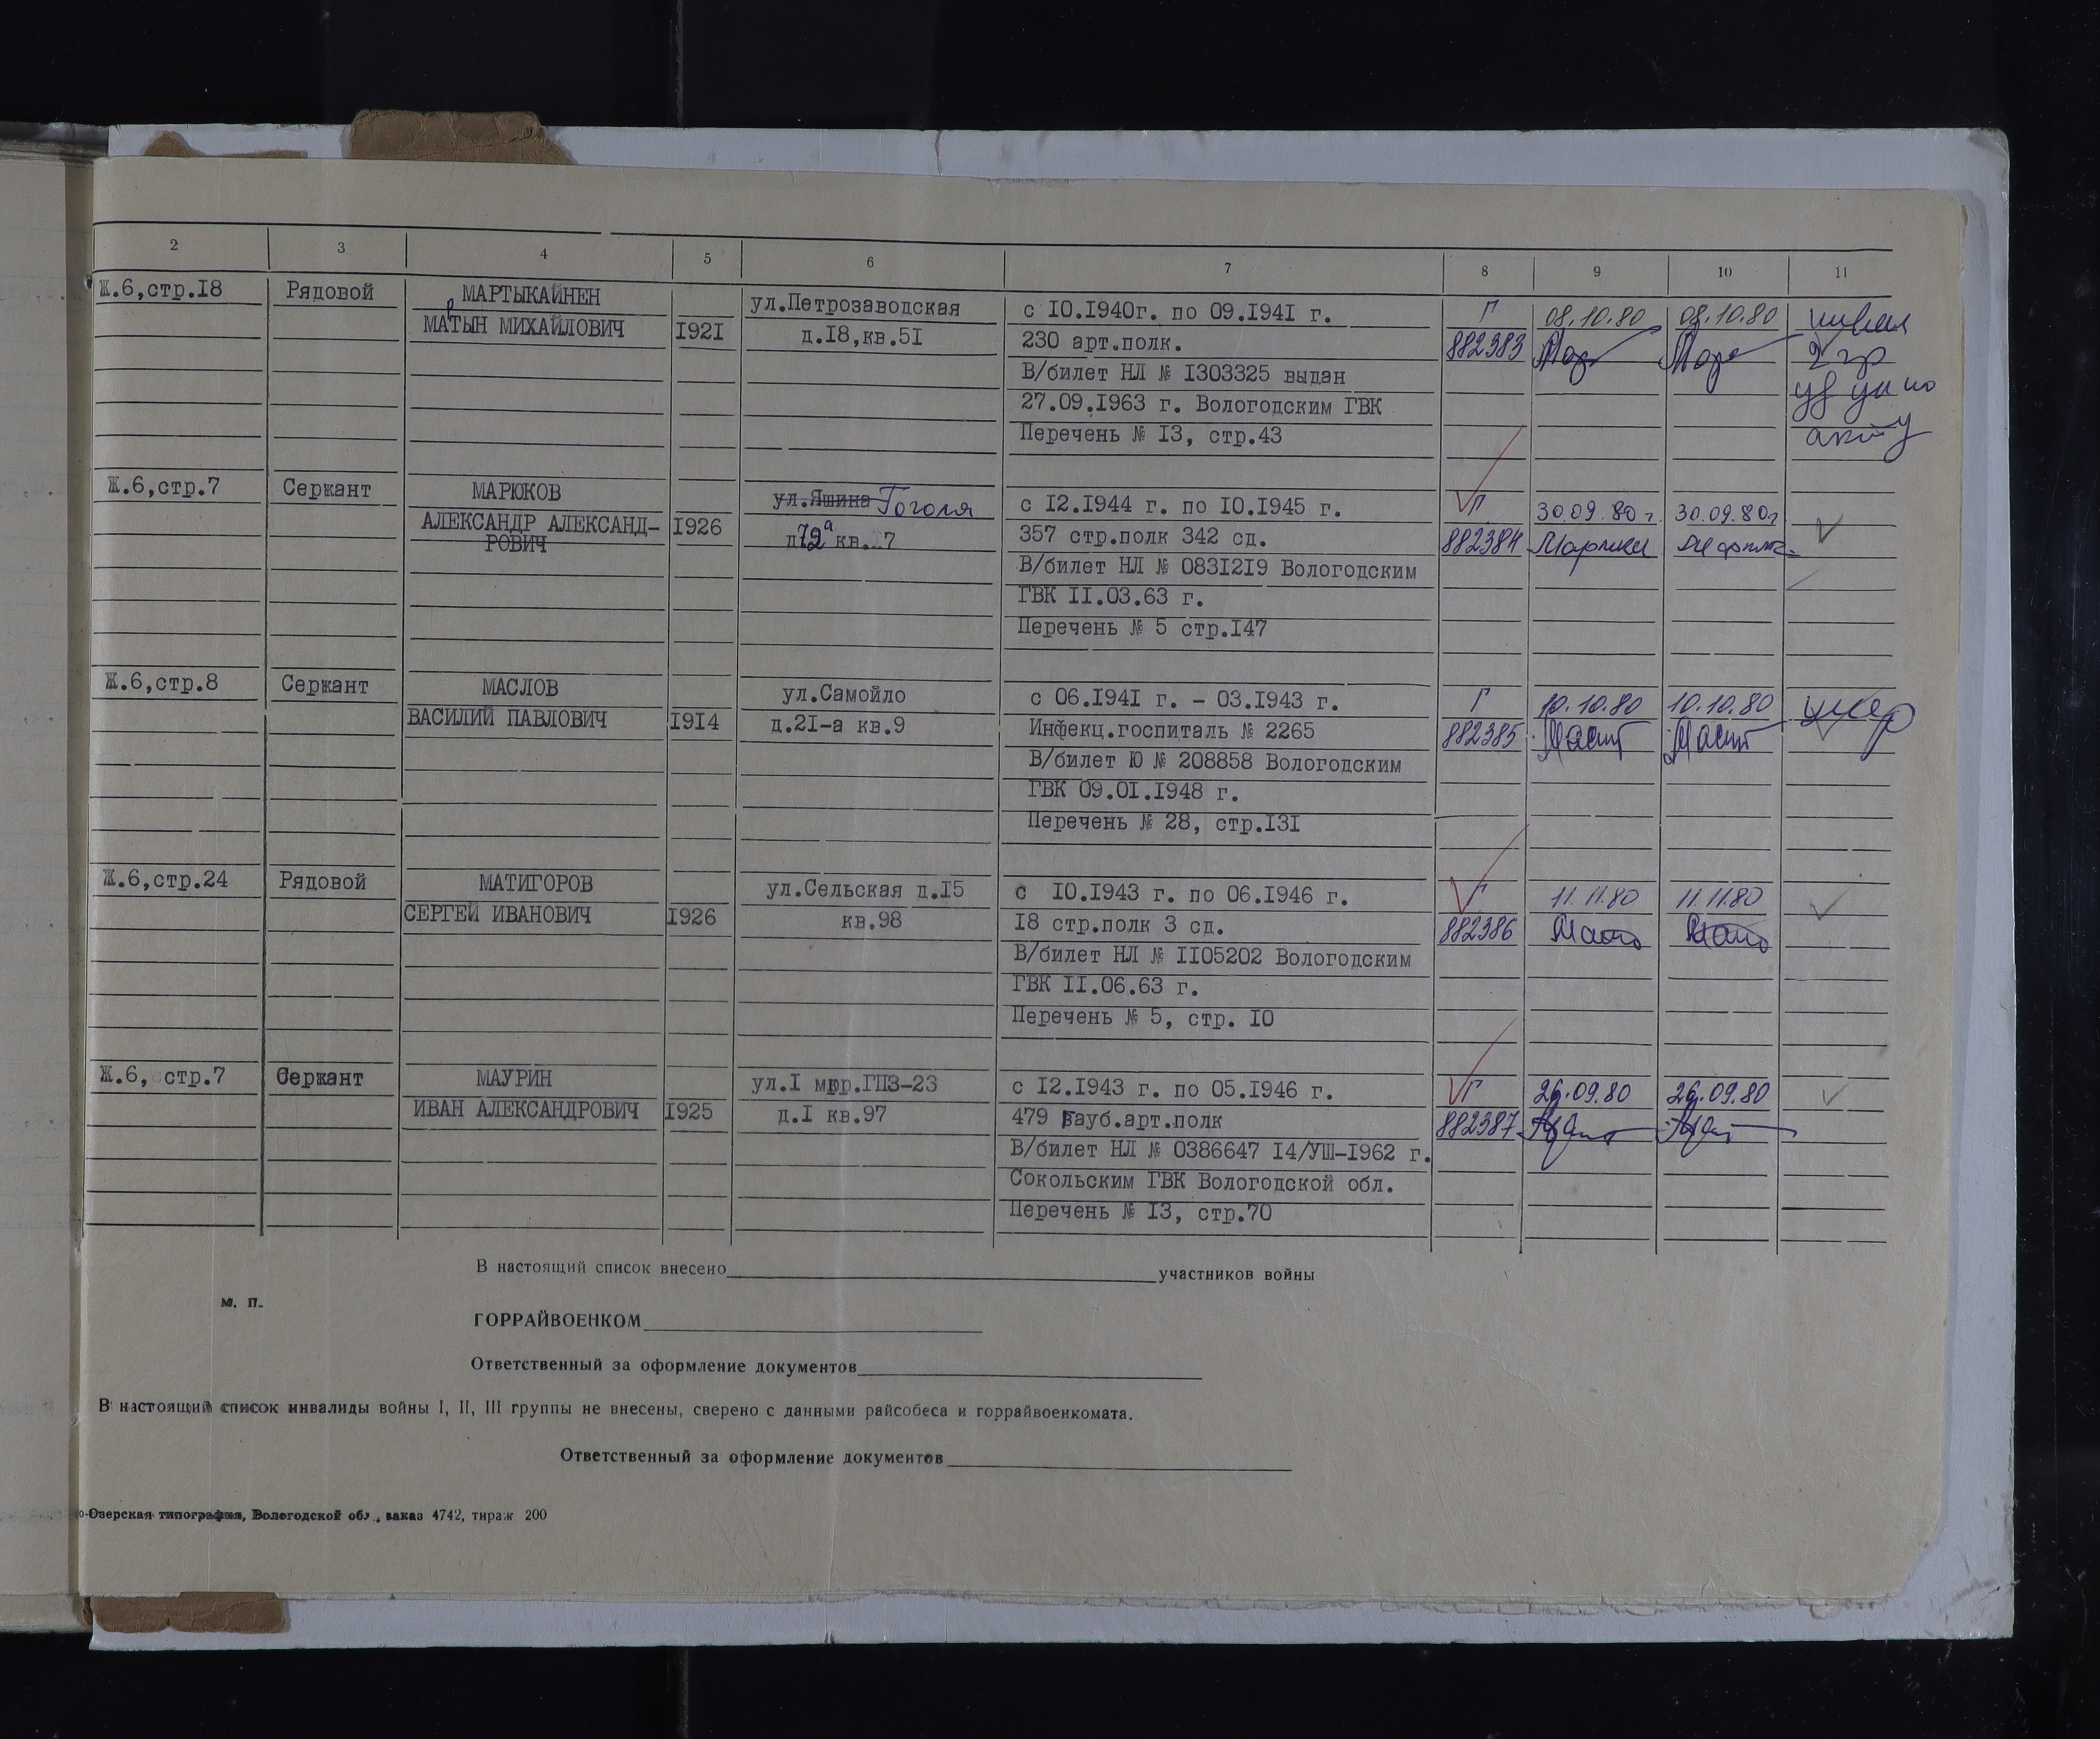 2 3 4 5 6 7 8 9 10 11
Ж.6,стр.18 Рядовой МАРТЫКАЙНЕН ул.Петрозаводская с 10.1940г. по 09.1941 г. Г 08.10.80 08.10.80 инвал
МАРТЫН МИХАЙЛОВИЧ 1921 д.18,кв.51 230 арт.полк. 882383 2 гр
В/билет НЛ № 1303325 выдан
27.09.1963 г. Вологодским ГВК
Перечень № 13, стр.43 акту
Ж.6,стр.7 Сержант МАРЮКОВ ул.Яшина Гоголя с 12.1944 г. по 10.1945 г. Г 30.09.80 г. 30.09.80г
АЛЕКСАНДР АЛЕКСАНД- 1926 357 стр.полк 342 сд. 882384
РОВИЧ кв. 7
В/билет НЛ № 0831219 Вологодским
ГВК 11.03.63 г.
Перечень № 5 стр.147
Ж.6,стр.8 Сержант МАСЛОВ ул.Самойло с 06.1941 г. - 03.1943 г. Г 10.10.80 10.10.80 умер
ВАСИЛИЙ ПАВЛОВИЧ 1914 д.21-а кв.9 Инфекц.госпиталь № 2265 882385
В/билет Ю № 208858 Вологодским
ГВК 09.01.1948 г.
Перечень № 28, стр.131
Ж.6,стр.24 Рядовой МАТИГОРОВ ул.Сельская д.15 с 10.1943 г. по 06.1946 г. Г 11.11.80 11.11.80
СЕРГЕЙ ИВАНОВИЧ 1926 кв.98 18 стр.полк 3 сд. 882386
В/билет НЛ № 1105202 Вологодским
ГВК 11.06.63 г.
Перечень № 5, стр. 10
Ж.6, стр.7 Сержант МАУРИН ул.1 мкр.ГПЗ-23 с 12.1943 г. по 05.1946 г. Г 26.09.80 26.09.80
ИВАН АЛЕКСАНДРОВИЧ 1925 д.1 кв.97 479 гауб.арт.полк 882387
В/билет НЛ № 0386647 14/УШ-1962 г.
Сокольским ГВК Вологодской обл.
Перечень № 13, стр.70
В настоящий список внесено участников войны
м. п.
ГОРРАЙВОЕНКОМ
Ответственный за оформление документов
В настоящий список инвалиды войны I, II, III группы не внесены, сверено с данными райсобеса и горрайвоенкомата.
Ответственный за оформление документов
о-Озерская типография, Вологодской обл., заказ 4742, тираж 200